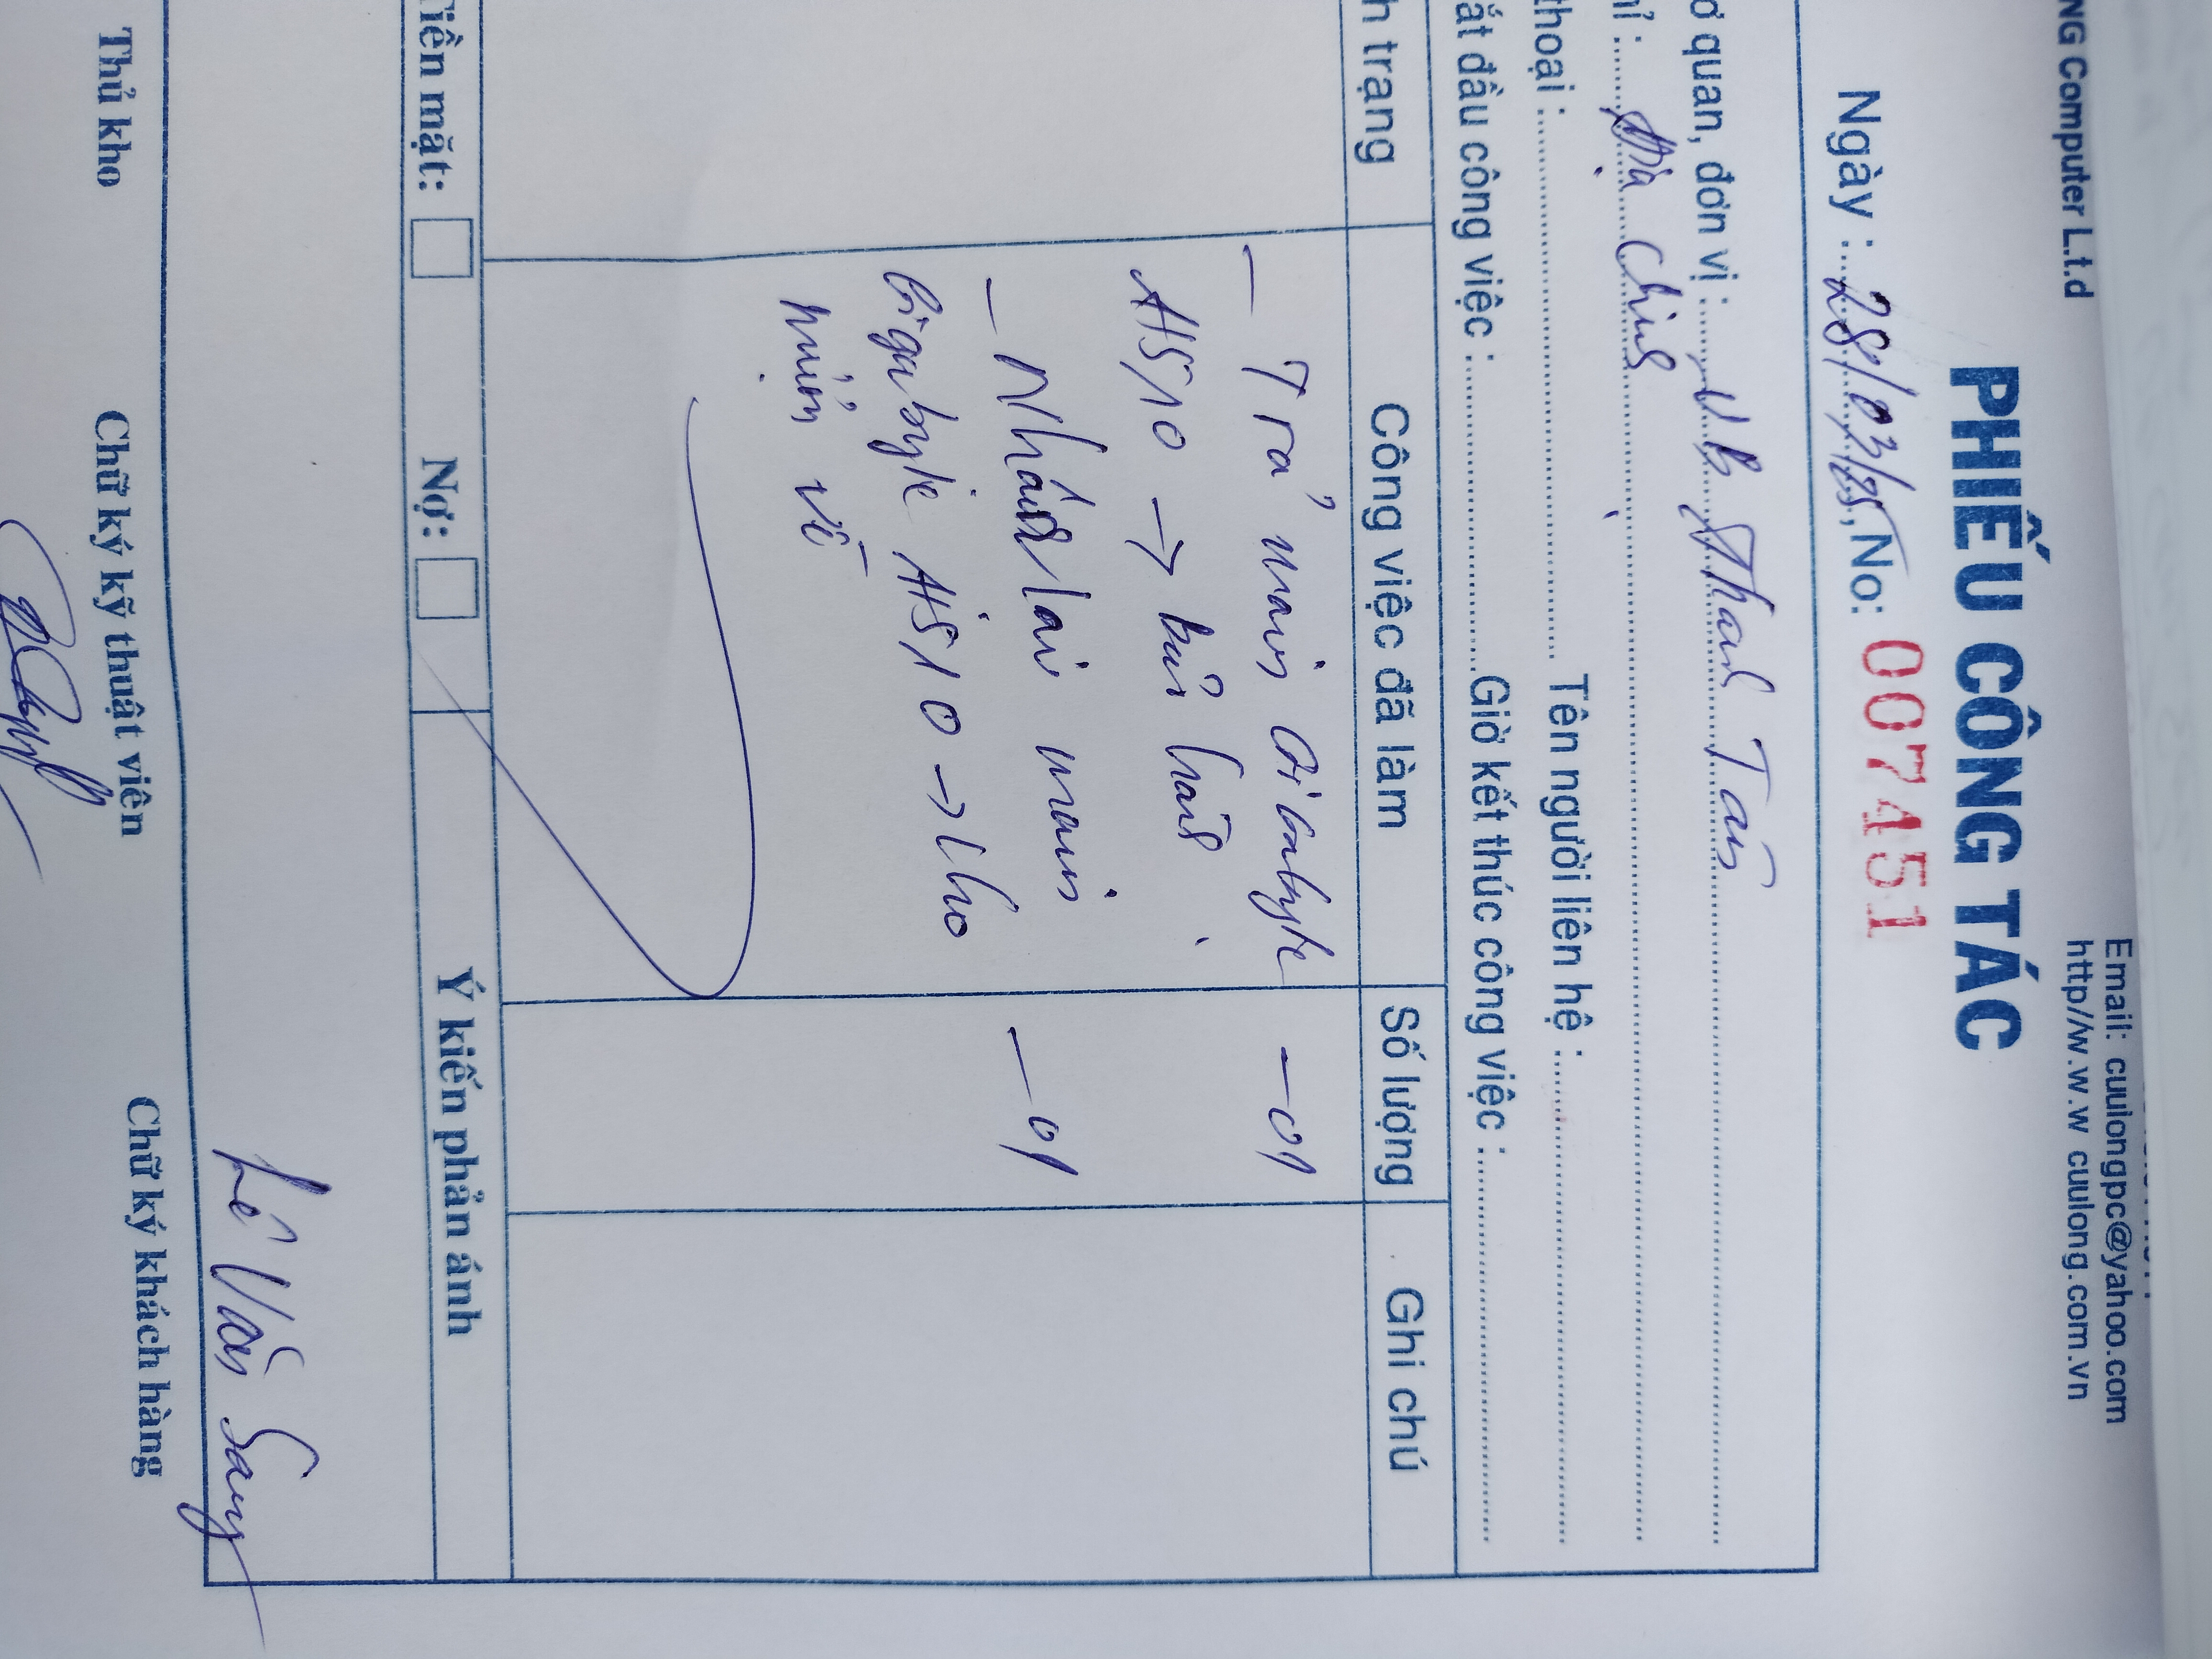 NG Computer L.t.d
Email: cuulongpc@yahoo.com
http//w.w.w cuulong.com.vn
PHIẾU CÔNG TÁC
Ngày : 28/03/25, No: 007451
ơ quan, đơn vị : Ub Thanh Tân
ỉ : Địa Chính
thoại : Tên người liên hệ :
ắt đầu công việc : Giờ kết thúc công việc :
h trạng Công việc đã làm Số lượng Ghi chú
- Trả main Gigabyte - 01
H510 → bảo hành
- Nhận lại main - 01
Gigabyte H510 → cho
mượn về
Tiền mặt: Nợ: Ý kiến phản ánh
Lê Văn Sang
Thủ kho Chữ ký kỹ thuật viên Chữ ký khách hàng